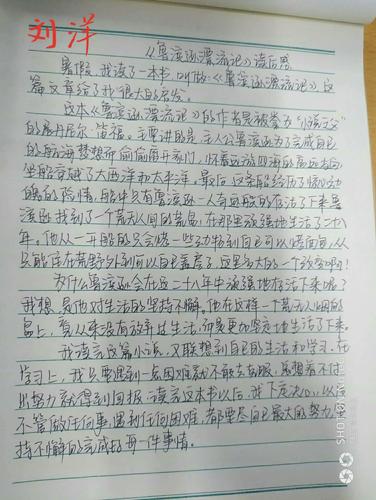 刘洋
《鲁滨逊漂流记》读后感
暑假,我读了一本书,叫做《鲁滨逊漂流记》,这
篇文章给了我很大的启发。
这本《鲁滨逊漂流记》的作者是被誉为“小说之父”
的丹尼尔·笛福。主要讲的是:主人公鲁滨逊为了完成自己
的航海梦想而偷偷离开家门,怀着远游四海的高远志向
坐船穿越了大西洋和太平洋。最后这条船经历了惊心动
魄的险情,船中只有鲁滨逊一人奇迹般的存活了下来。鲁
滨逊找到了一个荒无人烟的荒岛,在那里顽强地生活了二十八
年。他从一开始的只会
能住在荒野外到可以自己盖房子,这是多大的一个改变啊!
为什么鲁滨逊会在这二十八年中顽强地存活下来呢?
我想,是他对生活的坚持不懈。他在这样一个荒无人烟的
岛上,看从来没有放弃过生活,而是更加坚定地生活了下来。
我读完这篇小说,又联想到自己的生活和学习。在
学习上,我只要遇到一点困难就不敢去克服,总想着不付
出努力就得到回报。读完这本书以后,我下定决心,以后
不管做任何事,遇到任何困难,都要尽自己最大的努力,坚
持不懈的完成好每一件事情。
SHOT ON